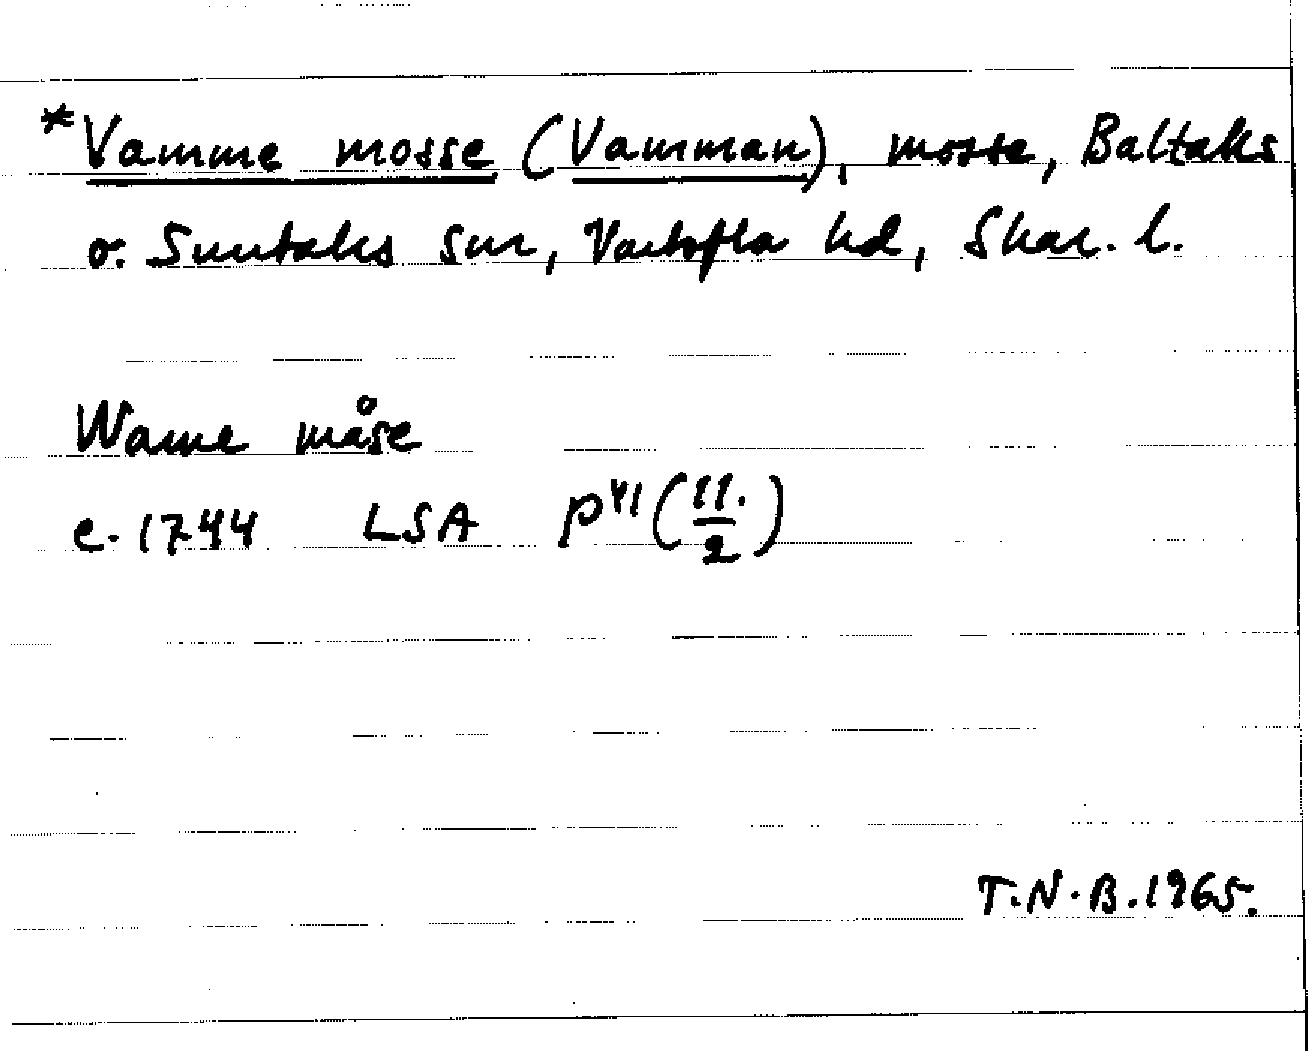 *Vamme mosse (Vamman), mosse, Baltaks
o. Suntaks snr, Vartofta hd, Skar. l.
Wame måse
c. 1744 LSA P41 (11./2)
T.N.B. 1965.